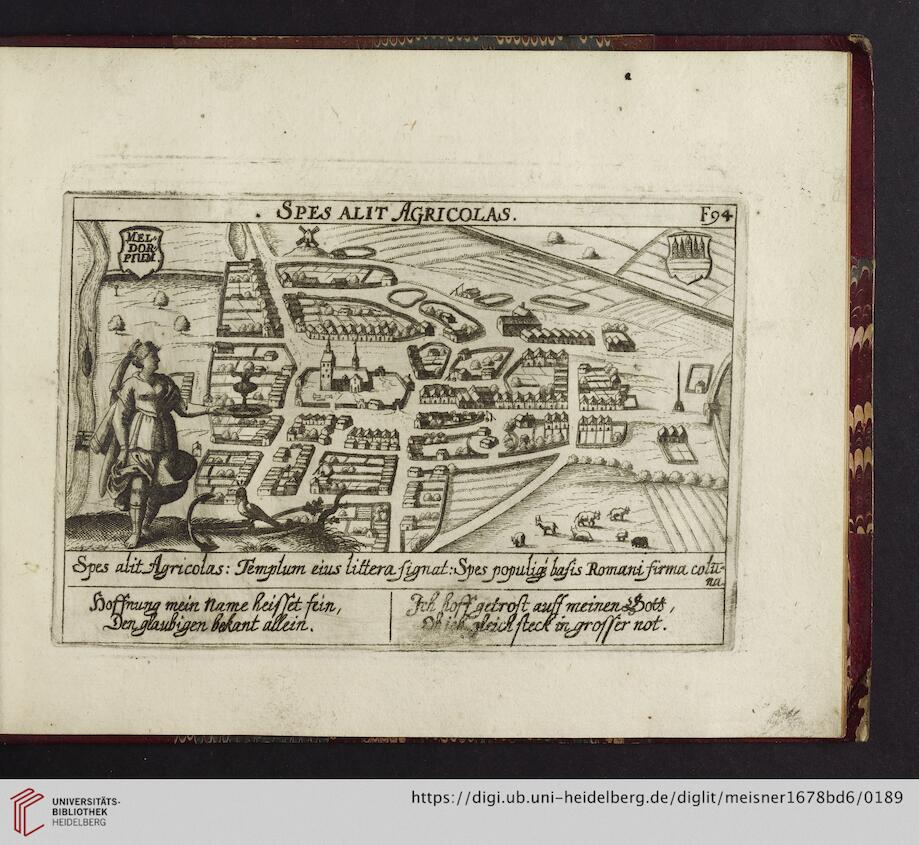 SPES ALIT AGRICOLAS.
F94
MEL-
DOR-
PIUM
Spes alit Agricolas: Templum eius littera signat: Spes populiqȝ basis Romani firma colu-
na.
Hoffnung mein Name heisset fein,
Den glaubigen bekant allein.
Ich hoff getrost auff meinen Gott,
Ob ich gleich steck in grosser not.
UNIVERSITÄTS-
BIBLIOTHEK
HEIDELBERG
https://digi.ub.uni-heidelberg.de/diglit/meisner1678bd6/0189